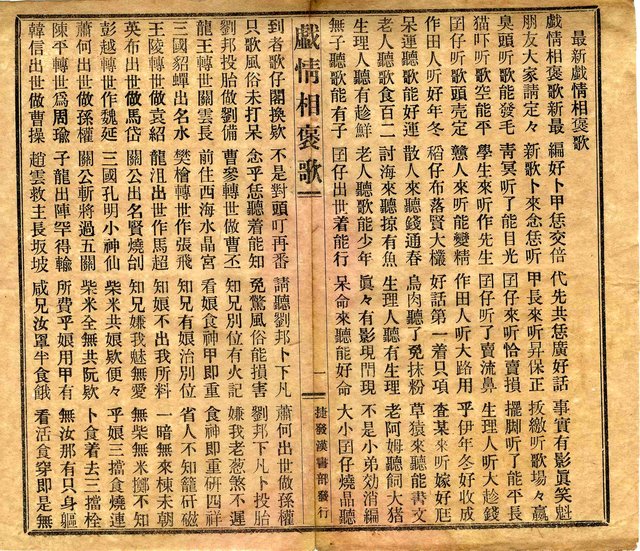 最新戲情相褒歌
戲情相褒歌新最 編好卜甲恁交倍 代先共恁廣好話 事實有影眞笑魁
朋友大家請定々 新歌卜來念恁听 甲長來听昇保正 拔繳听歌場々贏
臭頭听歌能發毛 青冥听了能目光 囝仔來听恰賣損 擺脚听了能平長
猫吓听歌空能平 學生來听作先生 囝仔听了賣流鼻 生理人听大趁錢
囝仔听歌頭壳定 戇人來听能變精 作田人听大路用 乎伊年冬好收成
作田人听好年冬 稻仔布落賢大欉 好話第一着只項 查某來听嫁好尫
呆運聽歌能好運 散人來聽錢通春 烏肉聽了免抹粉 草猿來聽能書文
老人聽歌食百二 討海來聽掠有魚 生理人聽有生理 老阿姆聽飼大猪
生理人聽有趁鮮 老人聽歌能少年 眞々有影現鬥現 不是小弟効消編
無子聽歌能有子 囝仔出世着能行 呆命來聽能好命 大小囝仔燒晶聽
戲情相褒歌
一
捷發漢書部發行
到者歌仔閣換欵 不是對頭叮再番 請聽劉邦卜下凡 蕭何出世做孫權
只歌風俗未打呆 念乎恁聽着能知 免驚風俗能損害 劉邦下凡卜投胎
劉邦投胎做劉備 曹參轉世做曹丕 知兄別位有火記 嫌我老葱煞不遲
龍王轉世關雲長 前住西海水晶宮 看娘食神甲即重 食神即重研四祥
三國貂蟬出名水 樊檜轉世作張飛 知兄有娘治別位 省人不知籠矸磁
王陵轉世做袁紹 龍沮出世作馬超 知娘不出我所料 一暗無來棟未朝
英布出世做馬岱 關公出名賢燒刣 知兄嫌我魅無愛 無柴無米擲不知
彭越轉世作魏延 三國孔明小神仙 柴米共娘欵便々 乎娘三擋食燒連
蕭何出世做孫權 關公斬將過五關 柴米全無共阮欵 卜食着去三擋栓
陳平轉世爲周瑜 子龍出陣罕得輸 所費乎娘用甲有 無汝那有只身軀
韓信出世做曹操 趙雲救主長坂坡 咸兄汝罩半食餓 看活食穿即是無